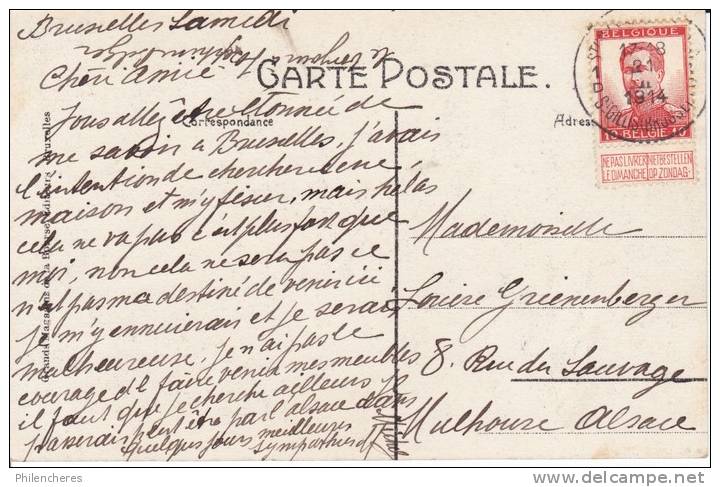 Bruxelles Samedi
Chère Amie
CARTE POSTALE.
Correspondance
Vous allez être étonnée de
me savoir à Bruxelles, j'avais
l'intention de chercher une
maison et m'y fixer, mais helas
cela ne va pas c'est plus fort que
moi, non cela ne sera pas ce
n'est pas ma destiné de venir ici
je m'y ennuierais et je serai
malheureuse, je n'ai pas le
courage de faire venir mes meubles
il faut que je cherche ailleurs, je
passerais peut être par l'alsace dans
quelques jours meilleures
sympathies
Grands Magasins de la Bourse Editeurs Bruxelles
BELGIQUE
10 BELGIË 10
NE PAS LIVRER LE DIMANCHE
NIET BESTELLEN OP ZONDAG
17-18
21
1914
Mademoiselle
Grienenberger
8. Rue du Sauvage
Mulhouse Alsace
Philencheres
www.delcampe.net